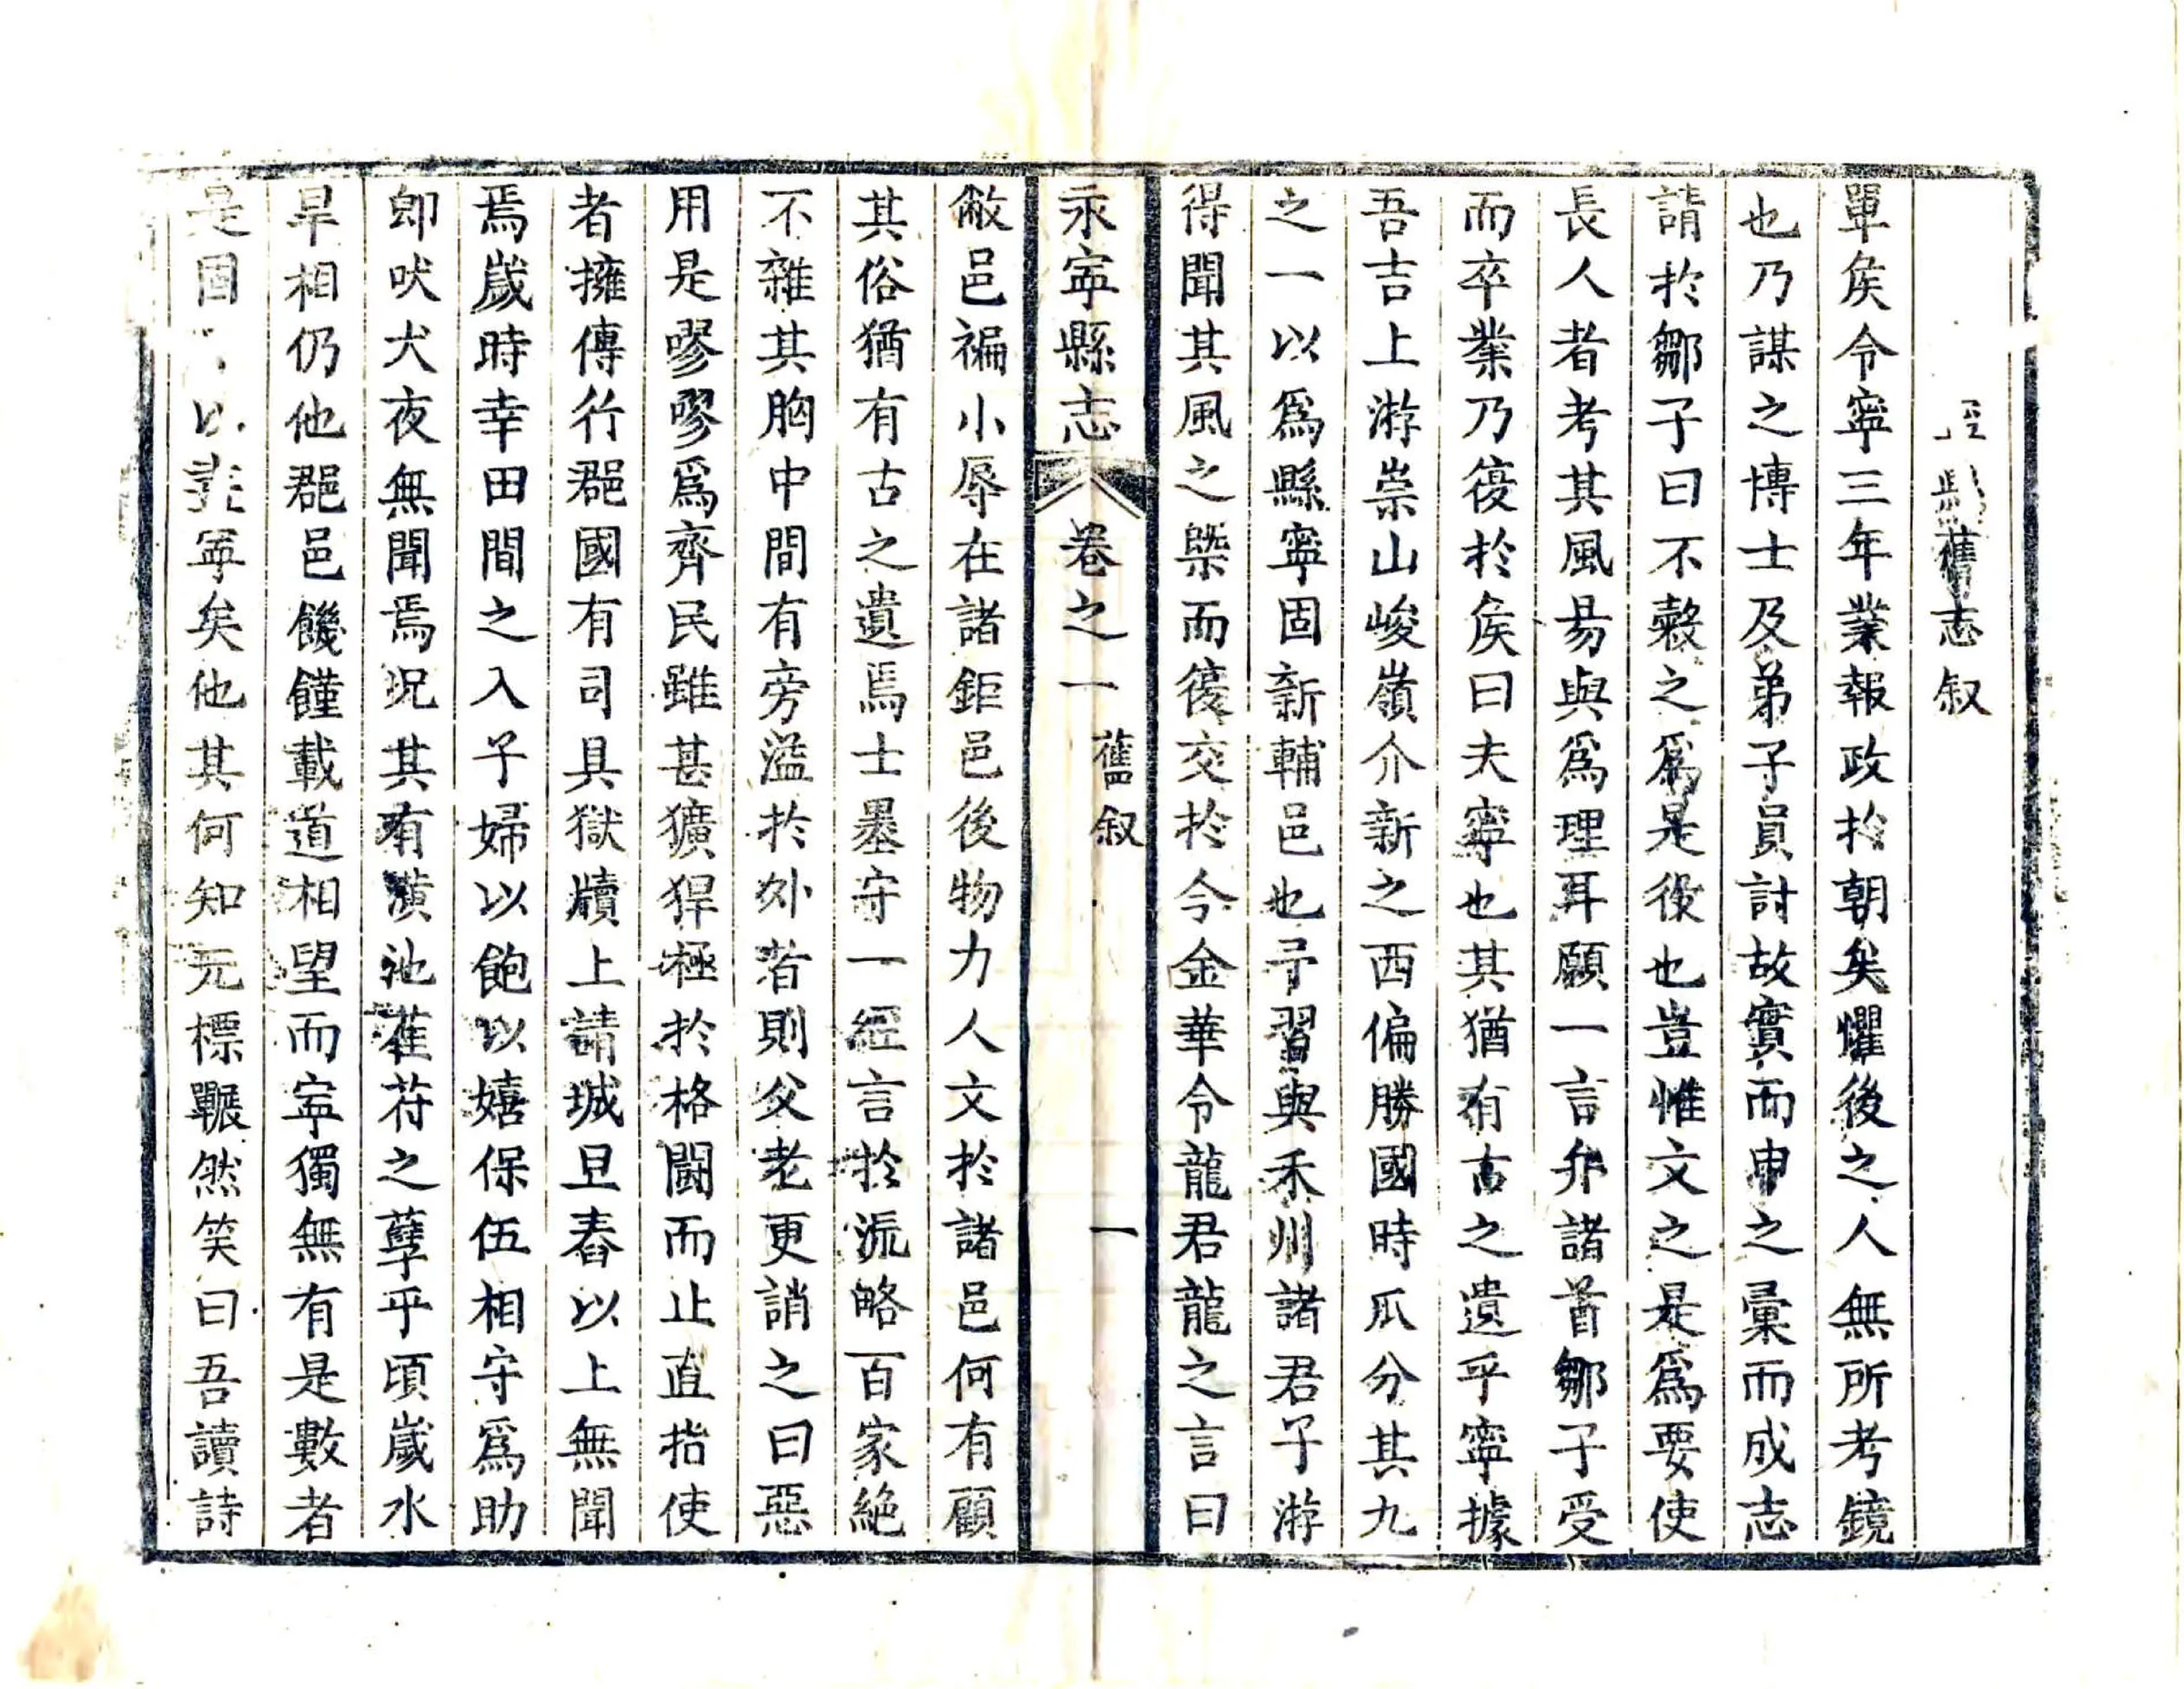 縣舊志叙
單矦令寧三年業報政於朝矣懼後之人無所考鏡
也乃謀之博士及弟子員討故實而申之彙而成志
請於鄒子曰不穀之爲是役也豈惟文之是爲要使
長人者考其風昜與爲理耳願一言弁諸首鄒子受
而卒業乃復於矦曰夫寧也其猶有古之遺乎寧據
吾吉上游崇山峻嶺介新之西偏勝國時瓜分其九
之一以爲縣寧固新輔邑也予習與禾州諸君子游
得聞其風之槩而復交於令金華令龍君龍之言曰
永寧縣志 卷之一 舊叙 一
敝邑褊小辱在諸鉅邑後物力人文於諸邑何有顧
其俗猶有古之遺焉士墨守一經言於流略百家絶
不雜其胸中間有旁溢於外者則父老更誚之曰惡
用是嘐嘐爲齊民雖甚獷猂極於格鬪而止直指使
者擁傳行郡國有司具獄牘上請城旦舂以上無聞
焉歲時幸田間之入子婦以飽以嬉保伍相守爲助
卽吠犬夜無聞焉況其有潢池萑苻之孽乎頃歲水
旱相仍他郡邑饑饉載道相望而寧獨無有是數者
是固以寧矣他其何知元標囅然笑曰吾讀詩